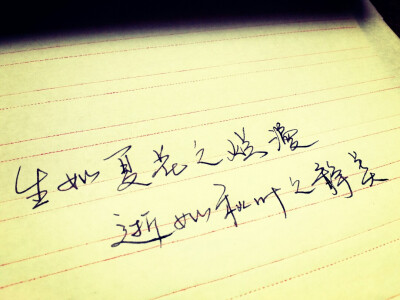 生如夏花之烂漫
逝如秋叶之静美